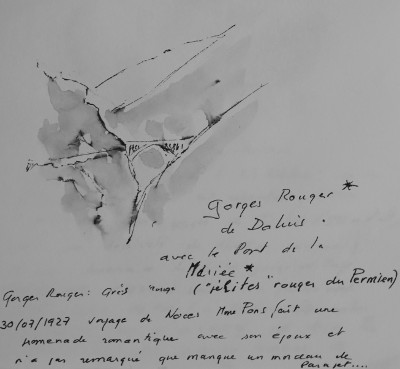 Gorges Rouges *
de Daluis.
avec le Pont de la
Mariée *
Gorges Rouges: Grès rouge ("pélites" rouges du Permien)
30/07/1927 voyage de Noces Mme Pons fait une
promenade romantique avec son époux et
n'a pas remarqué que manque un morceau de
Parapet....